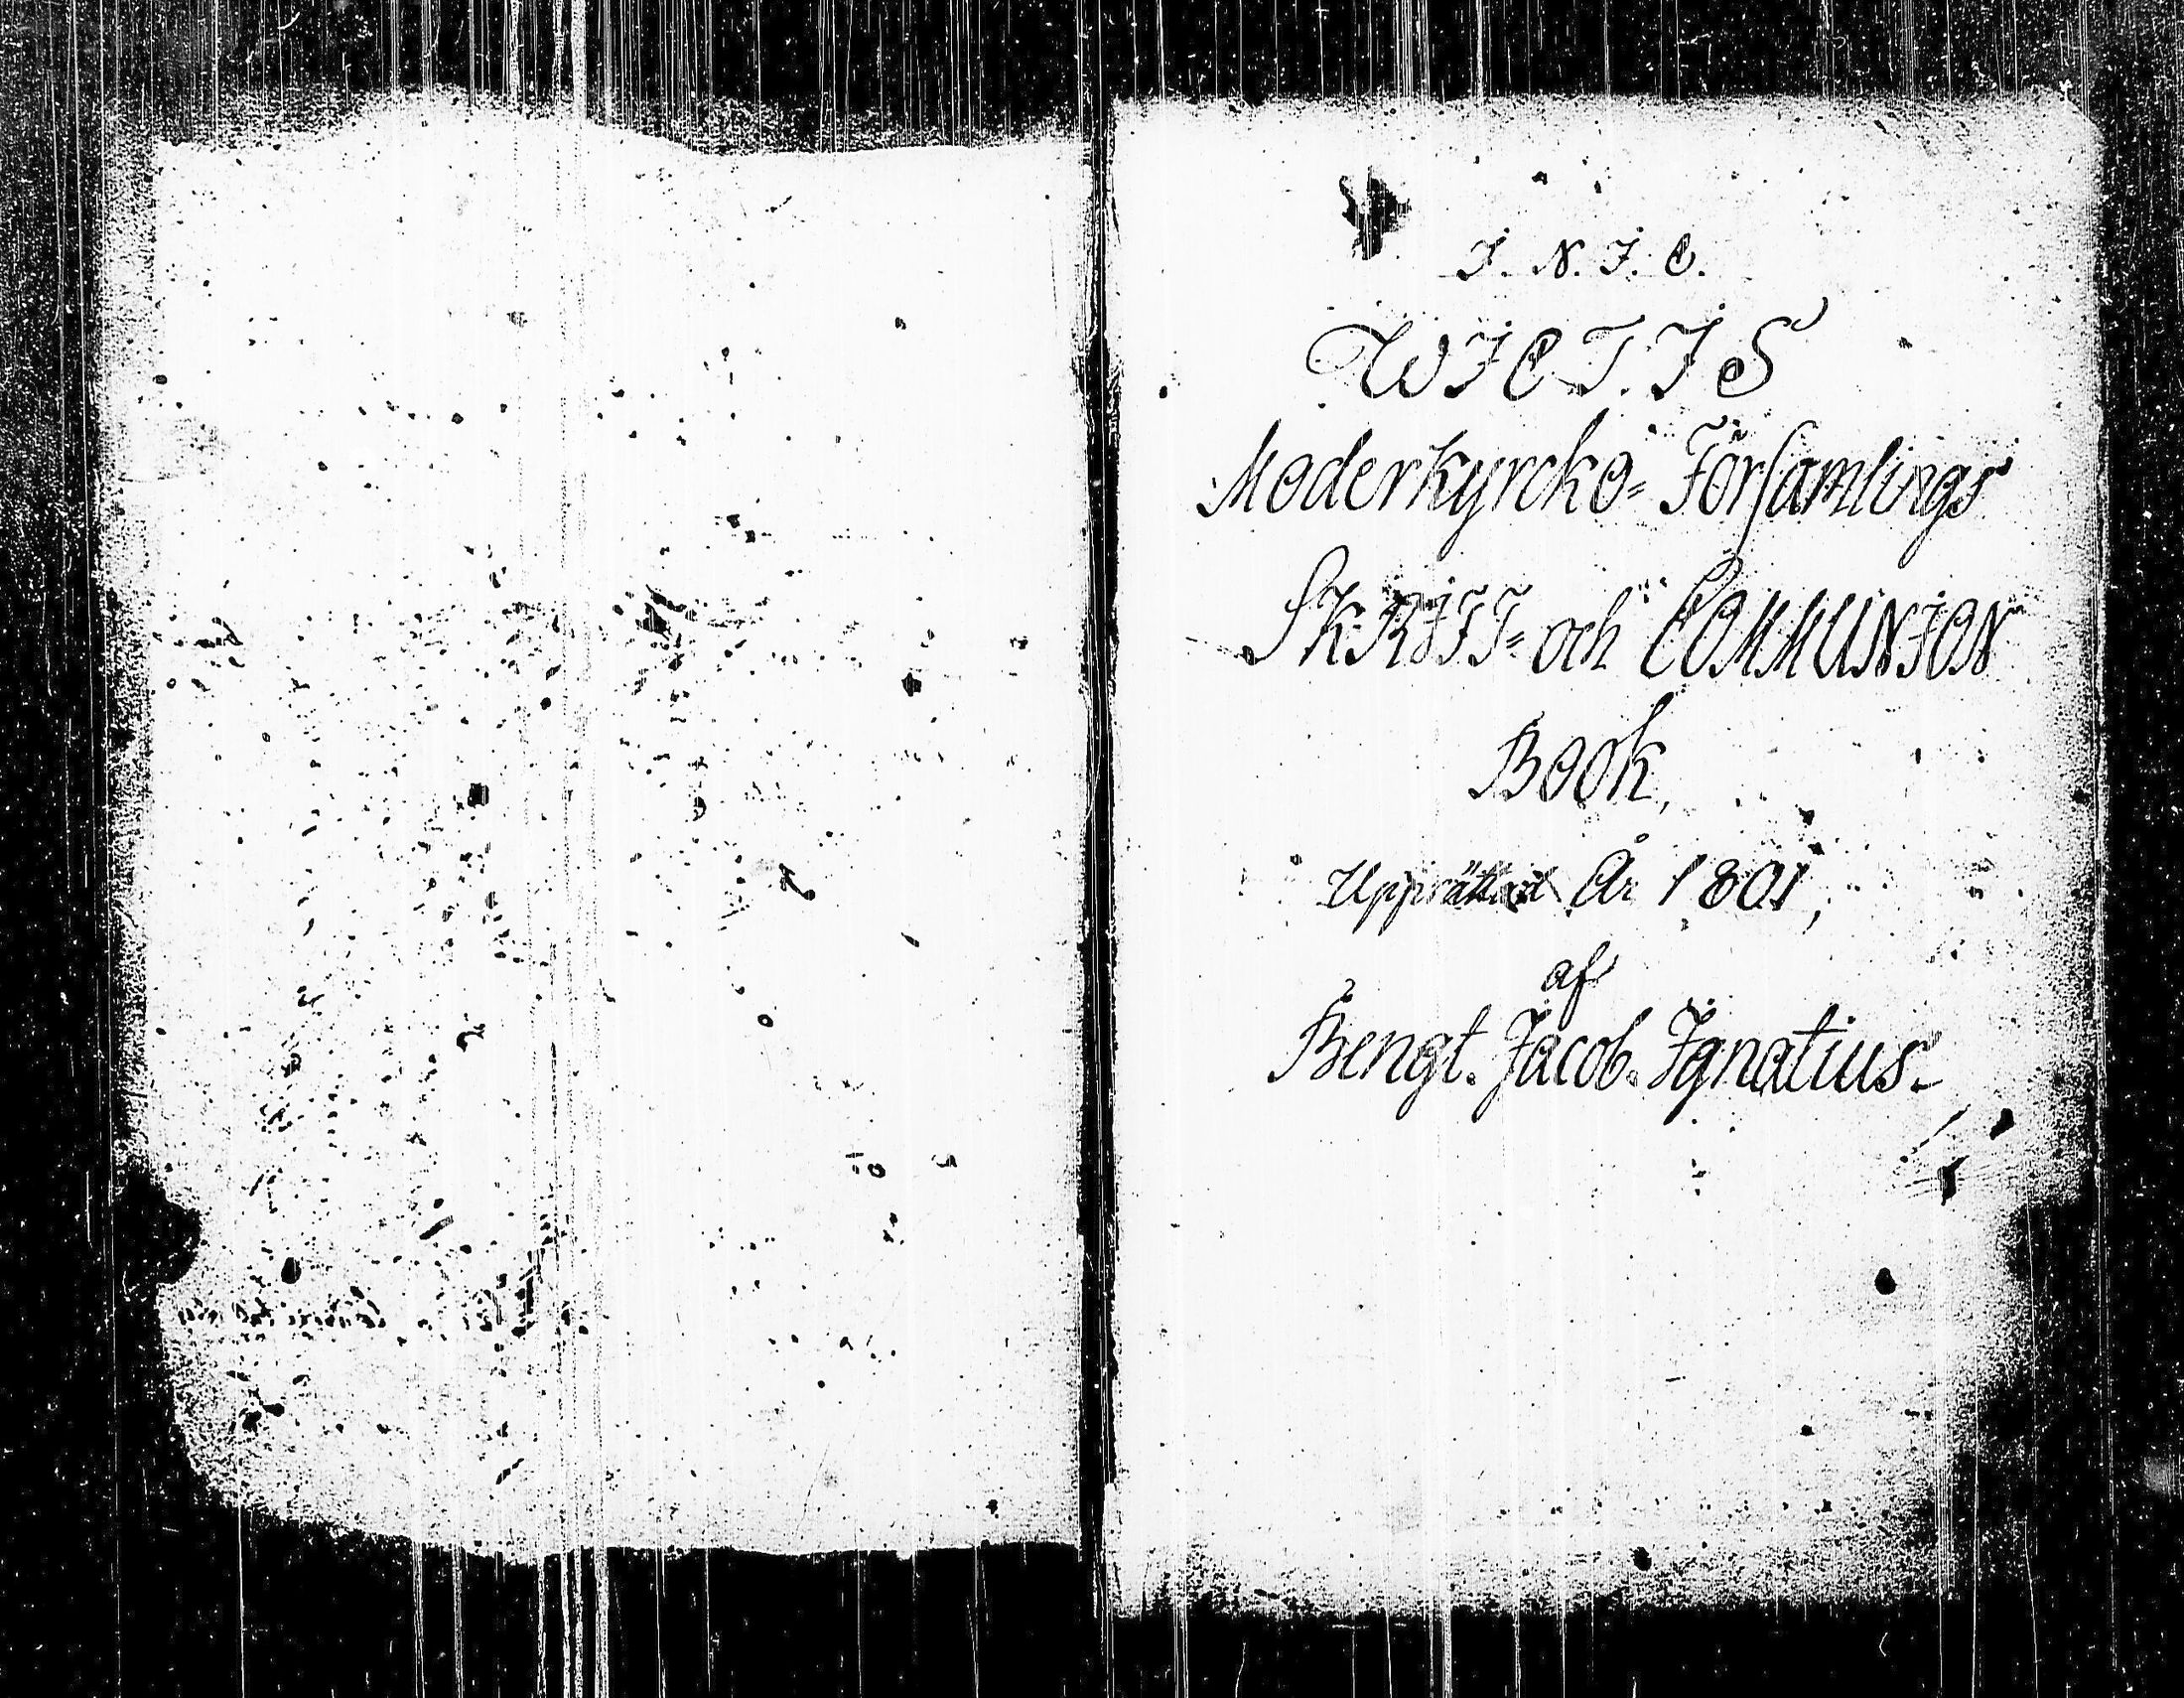 J. N. J. C.
WJCTJS
Moderkyrcko= Församlings
SKRJFT= och COMMUNJON
Book,
Upprättad År 1801,
af
Bengt. Jacob. Jgnatius.